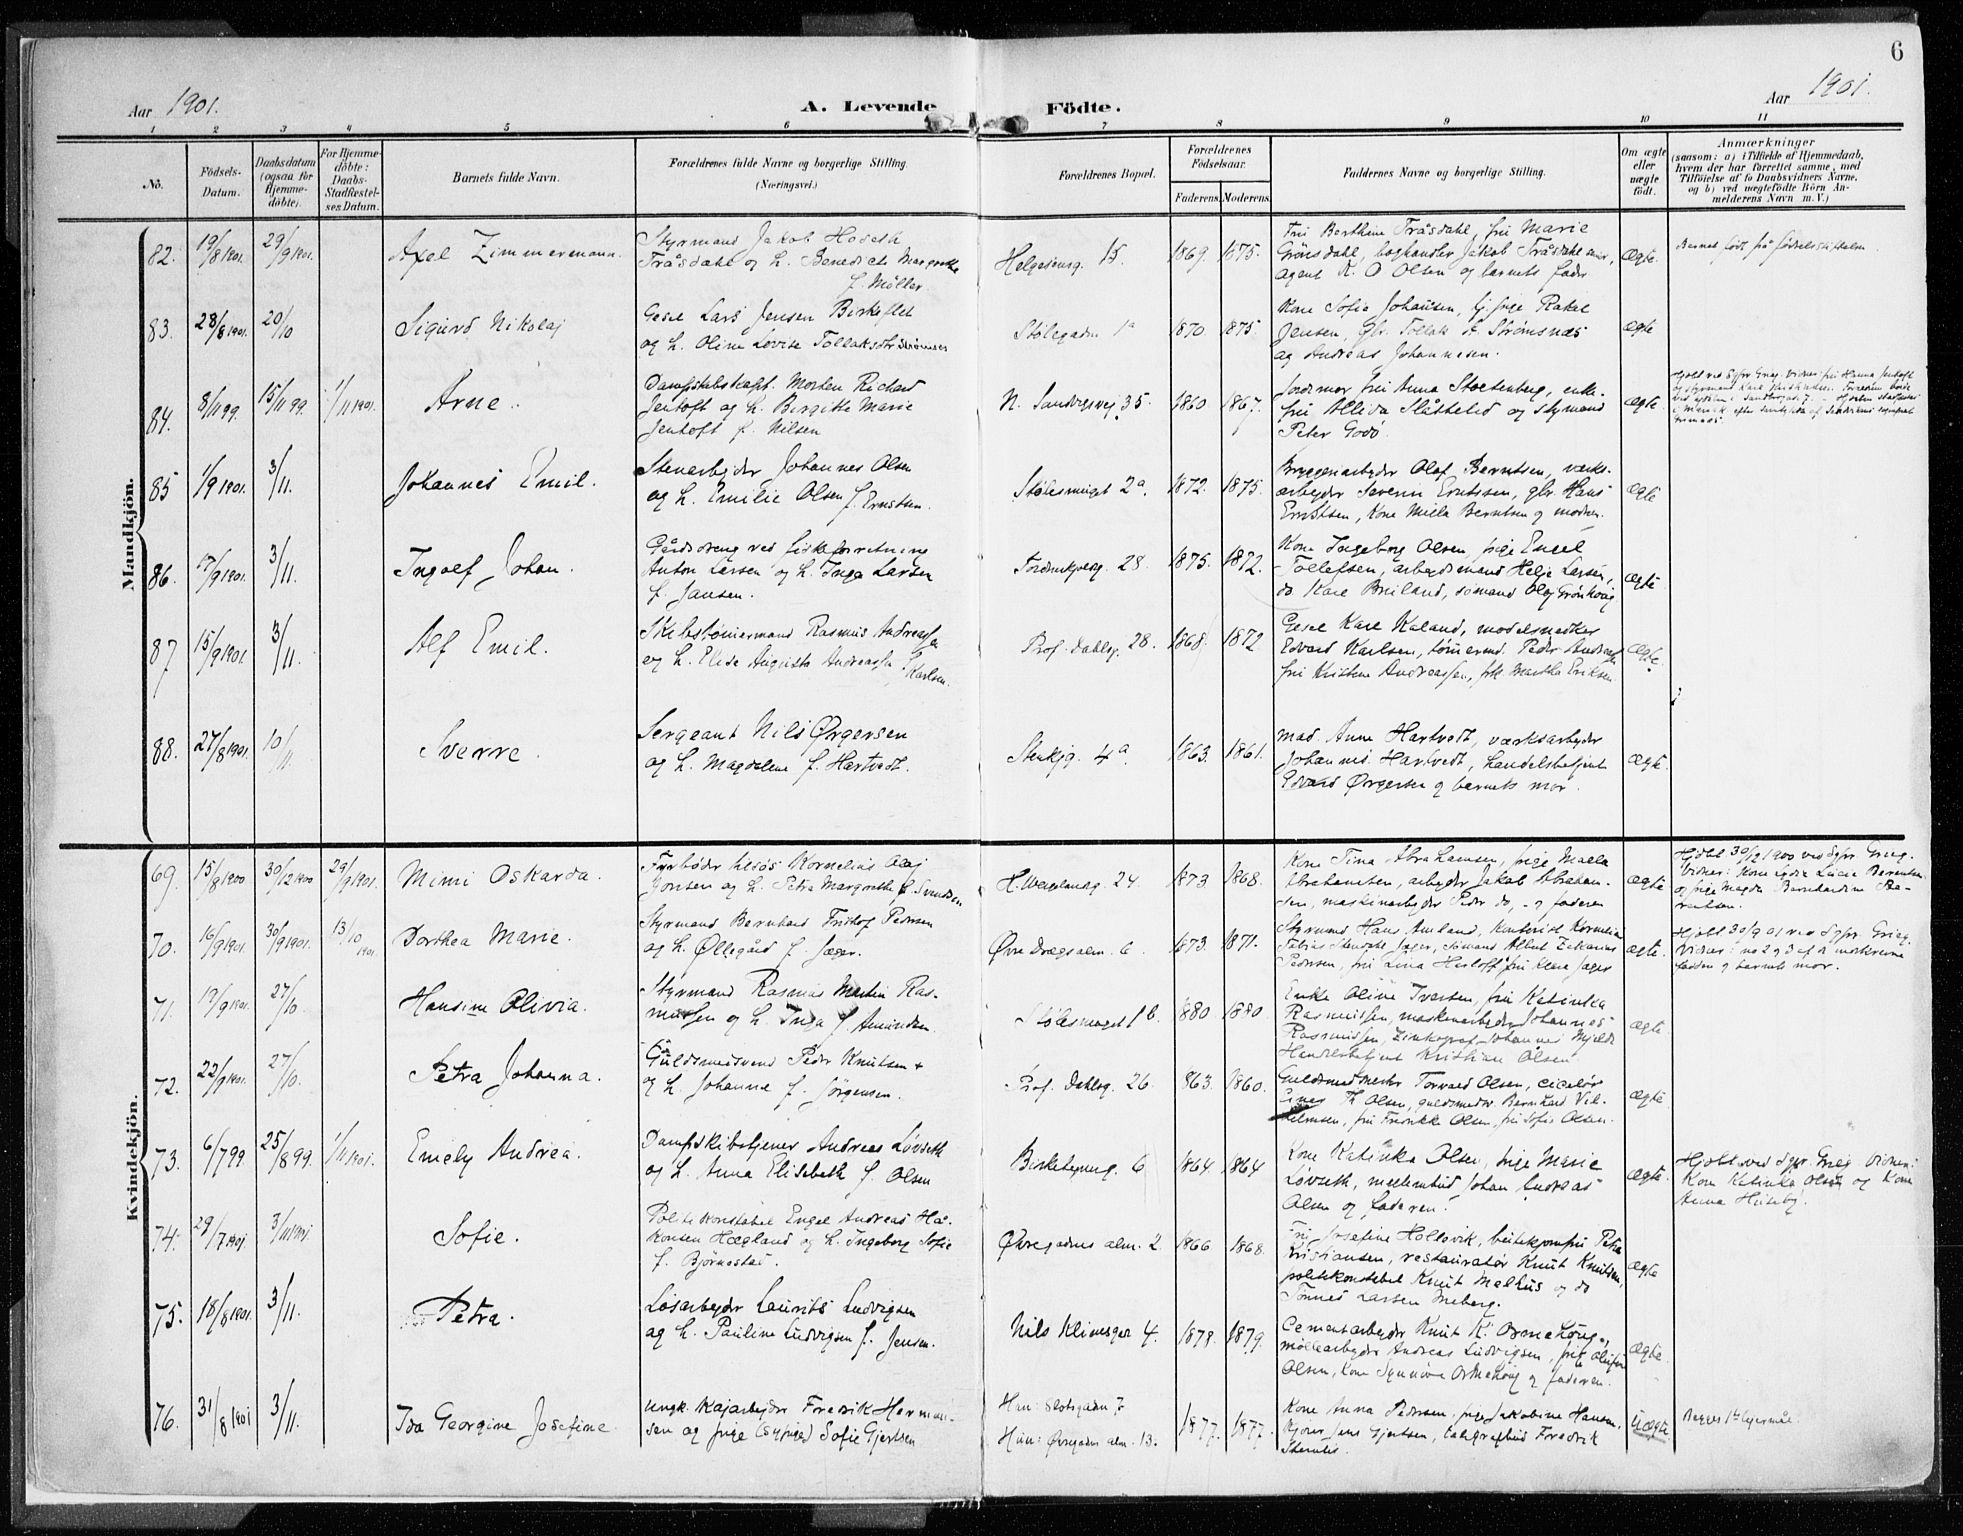 6
Aar 1901.
A. Levende Födte.
Aar 1901.
1 2 3 4 5 6 7 8 9 10 11
No.
Födsels-Datum.
Daabsdatum (ogsaa for Hjemmedöbte).
For Hjemmedöbte: Daabs-Stadfæstelses Datum.
Barnets fulde Navn.
Forældrenes fulde Navne og borgerlige Stilling. (Næringsvei.)
Forældrenes Bopæl.
Forældrenes Födselsaar.
Faderens. Moderens.
Faddernes Navne og borgerlige Stilling.
Om ægte eller uægte födt.
Anmærkninger
(saasom: a) i Tilfælde af Hjemmedaab, hvem der har forrettet samme, med Tilföielse af to Daabsvidners Navne, og b) ved uægtefödte Börn Anmelderens Navn m. V.)
Mandkjön.
82. 19/8 1901. 29/9 1901. Axel Zimmermann.
Styrmand Jakob Hoseth
Tråsdahl og h. Benedicte Margrethe
f. Möller.
Helgesensg. 15. 1869. 1875.
Fru Berthine Tråsdahl, fru Marie
Grönsdahl, boghandler Jakob Tråsdahl senior,
agent K. O. Olsen og barnets fader
Ægte. Barnet födt på födselsstiftelsen.
83. 28/8 1901. 20/10 Sigurd Nikolaj
Gesel Lars Jensen Birkeflet
og h. Oline Lovise Tollaksdtr Strömsnes
Stölegaden 1a 1870. 1875.
Kone Sofie Johansen, pige Rakel
Jensen, Gbr. Tollak Strömsnæs
og Andreas Johannesen.
Ægte
84. 8/11 99. 15/11 99. 1/11 1901. Arne.
Dampskibskapt. Morten Richard
Jentoft og h. Birgitte Marie
Jentoft f. Nilsen
N. Sandvigsvej 35. 1860 1867.
Jordmor fru Anna Stoltenberg, enke
fru Alliva Slåttelid og styrmand
Peter Godö.
Ægte.
85 1/9 1901. 3/11. Johannes Emil.
Stenarbejder Johannes Olsen
og h. Emilie Olsen f. Ernstsen.
Stölesmuget 2a. 1872. 1875.
Bryggeriarbejder Olaf Berntsen, værksarbejder Severin Erntssen, gbr. Hans
Ernstsen, Kone Milla Berntsen og modren.
Ægte
86. 17/9 1901. 3/11. Ingolf Johan.
Gårdsdreng ved fiskeforretning
Anton Larsen og h. Inga Larsen
f. Jansen.
28. 1875. 1872.
Kone Ingeborg Olsen, pige Engel
Tollefsen, arbejdsmand Helje Larsen,
do Kare Breiland, sömand Olaf Grönhoug
Ægte
87 15/9 1901 3/11. Alf Emil.
Skibstömermand Rasmus Andreassen
og h. Elise Augusta Andreassen f. Karlsen.
Prof. Dahlsg. 28. 1868. 1872
Gesel Karl Kaland, modelsnedker
Edvard Karlsen, tömermd. Peder Andreassen
fru Kristine Andreassen, frk. Martha Eriksen
Ægte.
88. 27/8 1901 10/11 Sverre.
Sergeant Nils Ørgersen
og h. Magdelene f. Hartvedt.
Stenkjg. 4a. 1863. 1861.
Mad. Anne Hartvedt, værksarbejder
Johannes Hartvedt, handelsbetjent
Edvard Ørgersen og barnets mor.
Ægte.
Kvindekjön.
69. 15/8 1900 30/12 1900 29/9 1901. Mimi Oskarda.
Fyrböder Kornelius Olaj
Jonsen og h. Petra Margrethe f. Svendsen
H. Wergelandsg. 24. 1873 1868.
Kone Tina Abrahamsen, pige Malla
Abrahamsen, arbejder Jakob Abrahamsen, maskinarbejder Peder do, og faderen
Ægte
Hjdbt 30/12 1900 ved Sgpr. Grieg.
70. 16/9 1901. 30/9 1901. 13/10 1901. Dorthea Marie.
Styrmand Bernhard Fridtjof Pedersen
og h. Øllegård f. Jæger.
Øvre Dregsalm. 6. 1873. 1871.
Ægte.
Hjdbt 30/9 01 ved Sgpr. Grieg.
71. 17/9 1901. 27/10 Hansine Olivia.
Styrmand Rasmus Martin Rasmussen og h. Inga f. Amundsen.
Stölesmuget 1b. 1880 1880
Enke Oline Iversen, fru Katinka
Rasmussen, maskinarbejder Johannes
Rasmussen, Zinkograf Johannes Mjelde
Handelsbetjent Kristian Olsen
Ægte.
72. 22/9 1901. 27/10. Petra Johanna.
Guldsmedsvend Peder Knutsen
og h. Johanne f. Jörgensen.
Prof. Dahlsg. 26. 1863. 1860.
Guldsmedmester Torvald Olsen, ciselör
Einar Th Olsen, guldsmedsv. Bernhard Vilhelmsen, fru Fredrikke Olsen, fru Sofie Olsen.
Ægte
73. 6/7 99. 25/8 99. 1/11 1901. Emely Andrea.
Dampskibstjener Andreas Løvseth
og h. Anna Elisebeth f. Olsen
Birkebejnerg. 6 1864 1864
Kone Katinka Olsen, pige Marie
Løvseth, mellembud Johan Andreas
Olsen og faderen.
Ægte.
Hjdbt ved Sgpr. Grieg. Vidner:
Kone Katinka Olsen og Kone
Anna
74. 29/7 1901 3/11 1901. Sofie.
Politikonstabel Engel Andreas Håkonsen Hægland og h. Ingeborg Sofie
f. Björnestad.
Øvregadens alm. 2. 1866 1868.
Fru Josefine Holdsvik, pige Petra
Kristiansen, restauratör Knut Knutsen,
politikonstabel Knut Mælhus og do
Tönnes Larsen Meberg.
Ægte
75. 18/8 1901. 3/11. Petra.
Løsarbejder Laurits Ludvigsen
og h. Pauline Ludvigsen f. Jensen.
Nils Klimsgt 4. 1878. 1879.
Cementarbejder Knut K. Ormehöug,
möllearbejder Andreas Ludvigsen, frk Olufine
Olsen, Kone Synnöve Ormehöug og faderen.
Ægte.
76. 31/8 1901 3/11. Ida Georgine Josefine.
Ungk. Kajarbejder Fredrik Hermansen og pige (sypige) Sofie Gjertsen
Han: Slotsgaden 7
Hun: Øvregadens alm. 13. 1877. 1877.
Kone Anna Pedersen, pige Jakobine Hansen,
Kjörer Jens Gjertsen, telegrafbud Fredrik
Uægte Begges 1ste lejermål.